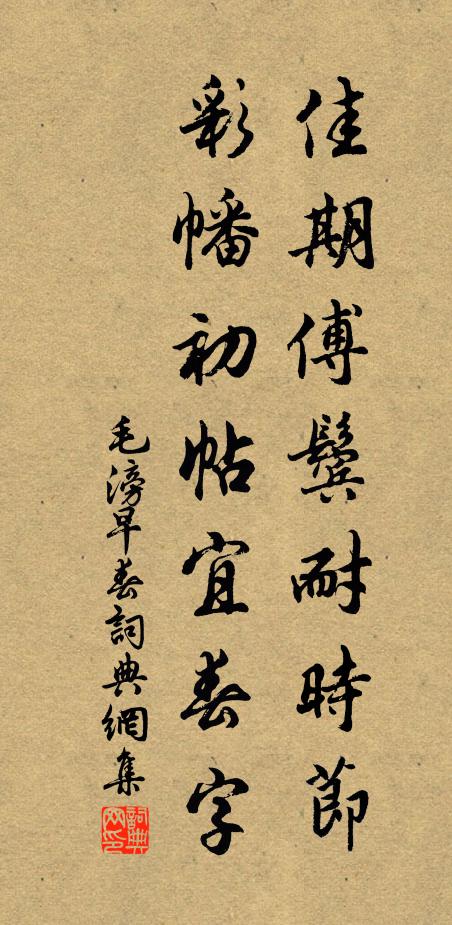 佳期傅鬓耐時節
彩幡初帖宜春字
毛滂早春詞典網集
詞典網印